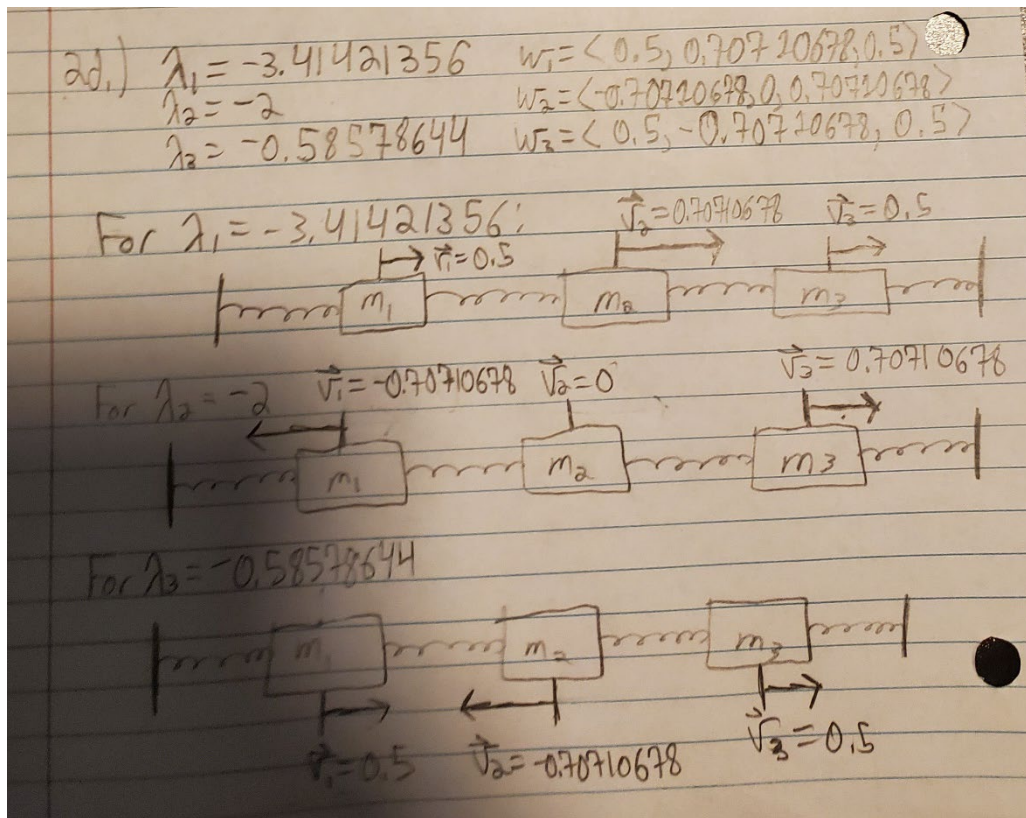 2d.) λ₁ = -3.41421356 w₁ = < 0.5, 0.70710678, 0.5>
λ₂ = -2 w₂ = <-0.70710678, 0, 0.70710678>
λ₃ = -0.58578644 w₃ = < 0.5, -0.70710678, 0.5>
For λ₁ = -3.41421356: v⃗₂ = 0.70710678 v⃗₃ = 0.5
v⃗₁ = 0.5
m₁ m₂ m₃
For λ₂ = -2 v⃗₁ = -0.70710678 v⃗₂ = 0 v⃗₃ = 0.70710678
m₁ m₂ m₃
For λ₃ = -0.58578644
m₁ m₂ m₃
v⃗₁ = 0.5 v⃗₂ = -0.70710678 v⃗₃ = 0.5